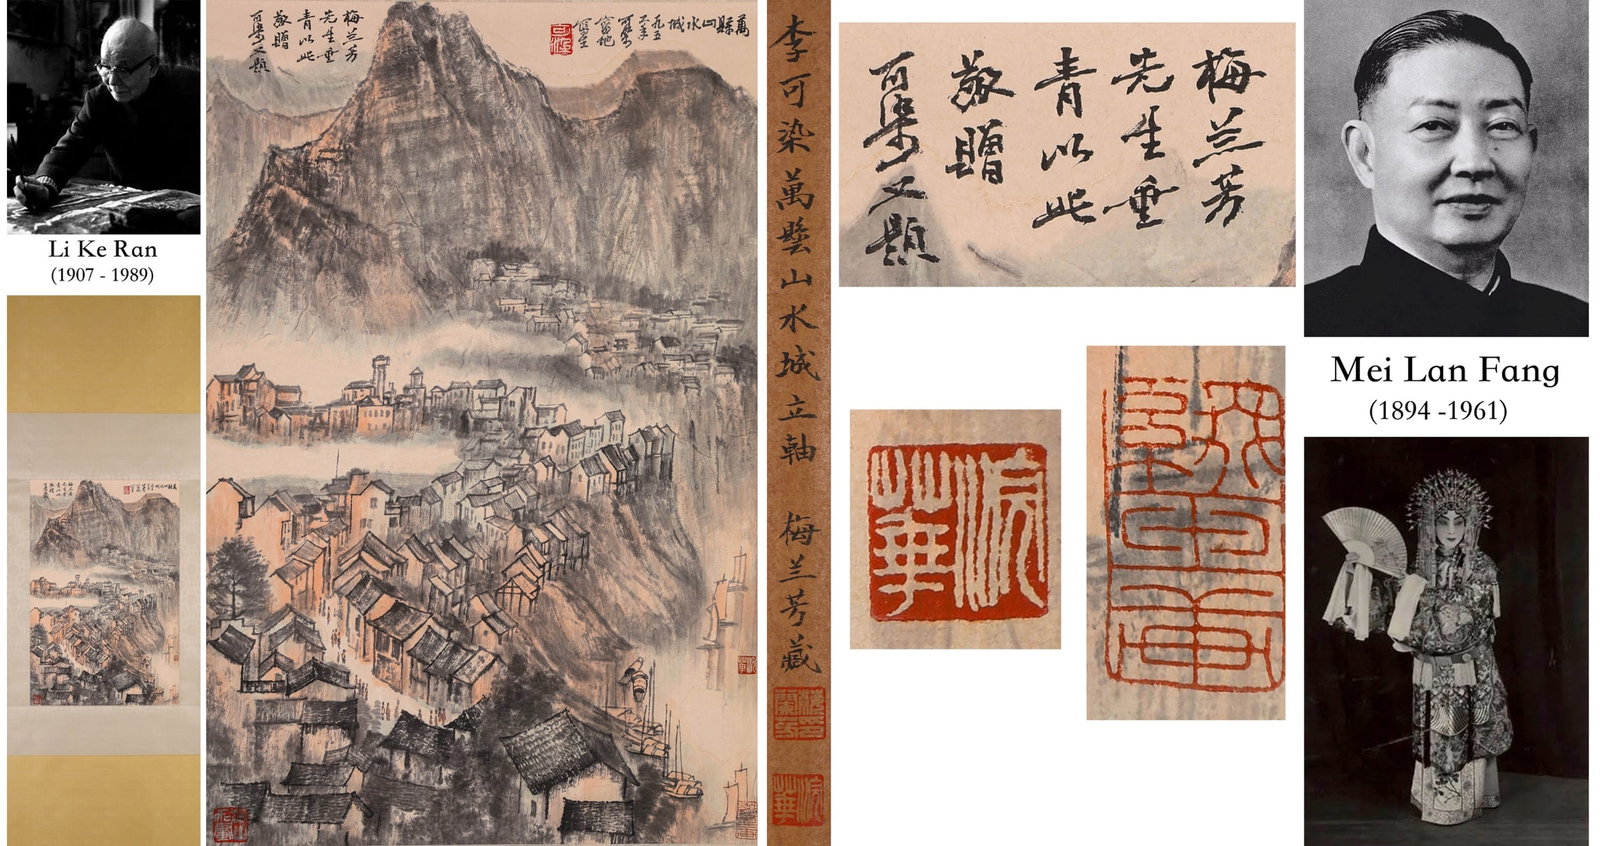 Li Ke Ran
(1907 - 1989)
梅兰芳
先生垂
青以此
敬贈
可染又題
萬縣山水城
可染
寫生
李可染萬縣山水城立軸 梅兰芳藏
梅蘭芳
浣華
梅兰芳
先生垂
青以此
敬贈
可染又題
浣華
Mei Lan Fang
(1894 -1961)